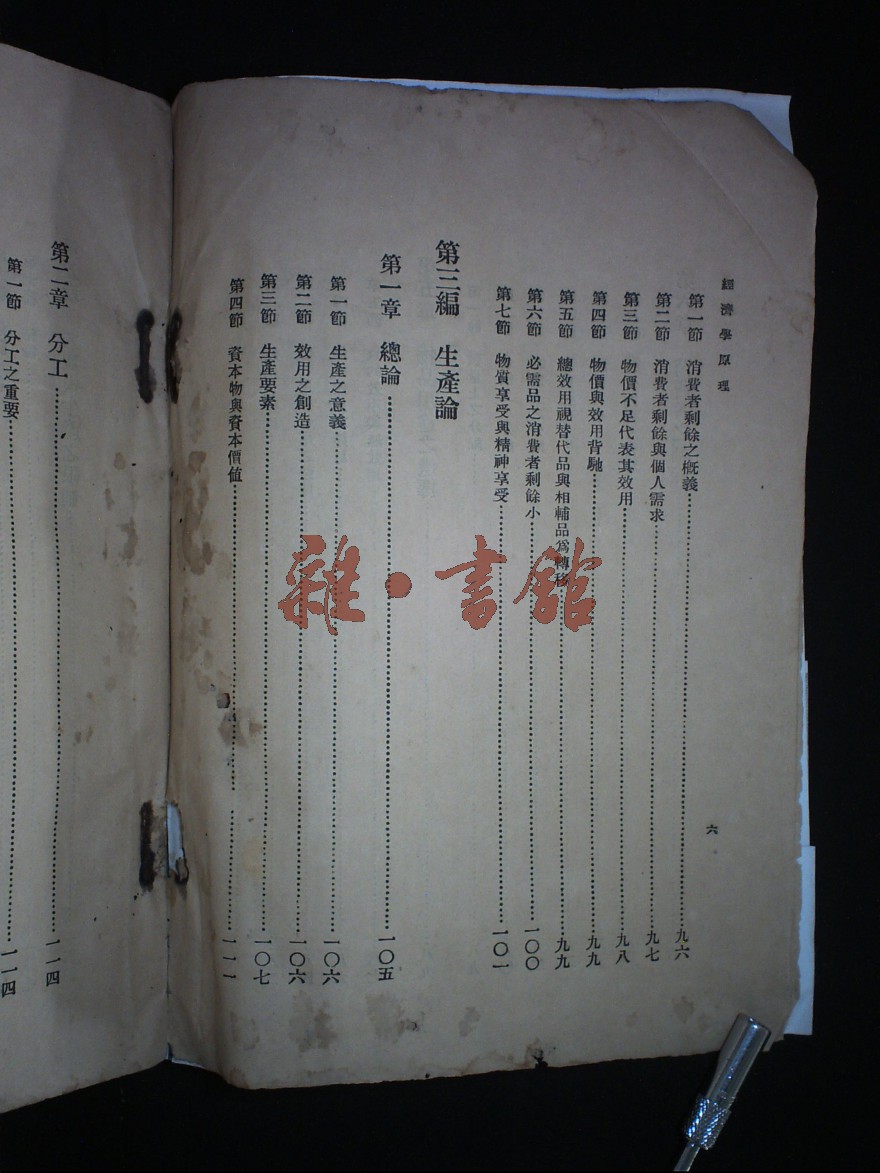 經濟學原理
六
第一節 消費者剩餘之概義……九六
第二節 消費者剩餘與個人需求……九七
第三節 物價不足代表其效用……九八
第四節 物價與效用背馳……九九
第五節 總效用視替代品與相輔品爲轉移……九九
第六節 必需品之消費者剩餘小……一〇〇
第七節 物質享受與精神享受……一〇一
第三編 生產論
第一章 總論……一〇五
第一節 生產之意義……一〇六
第二節 效用之創造……一〇六
第三節 生產要素……一〇七
第四節 資本物與資本價值……一一一
第二章 分工……一一四
第一節 分工之重要……一一四
雜·書館